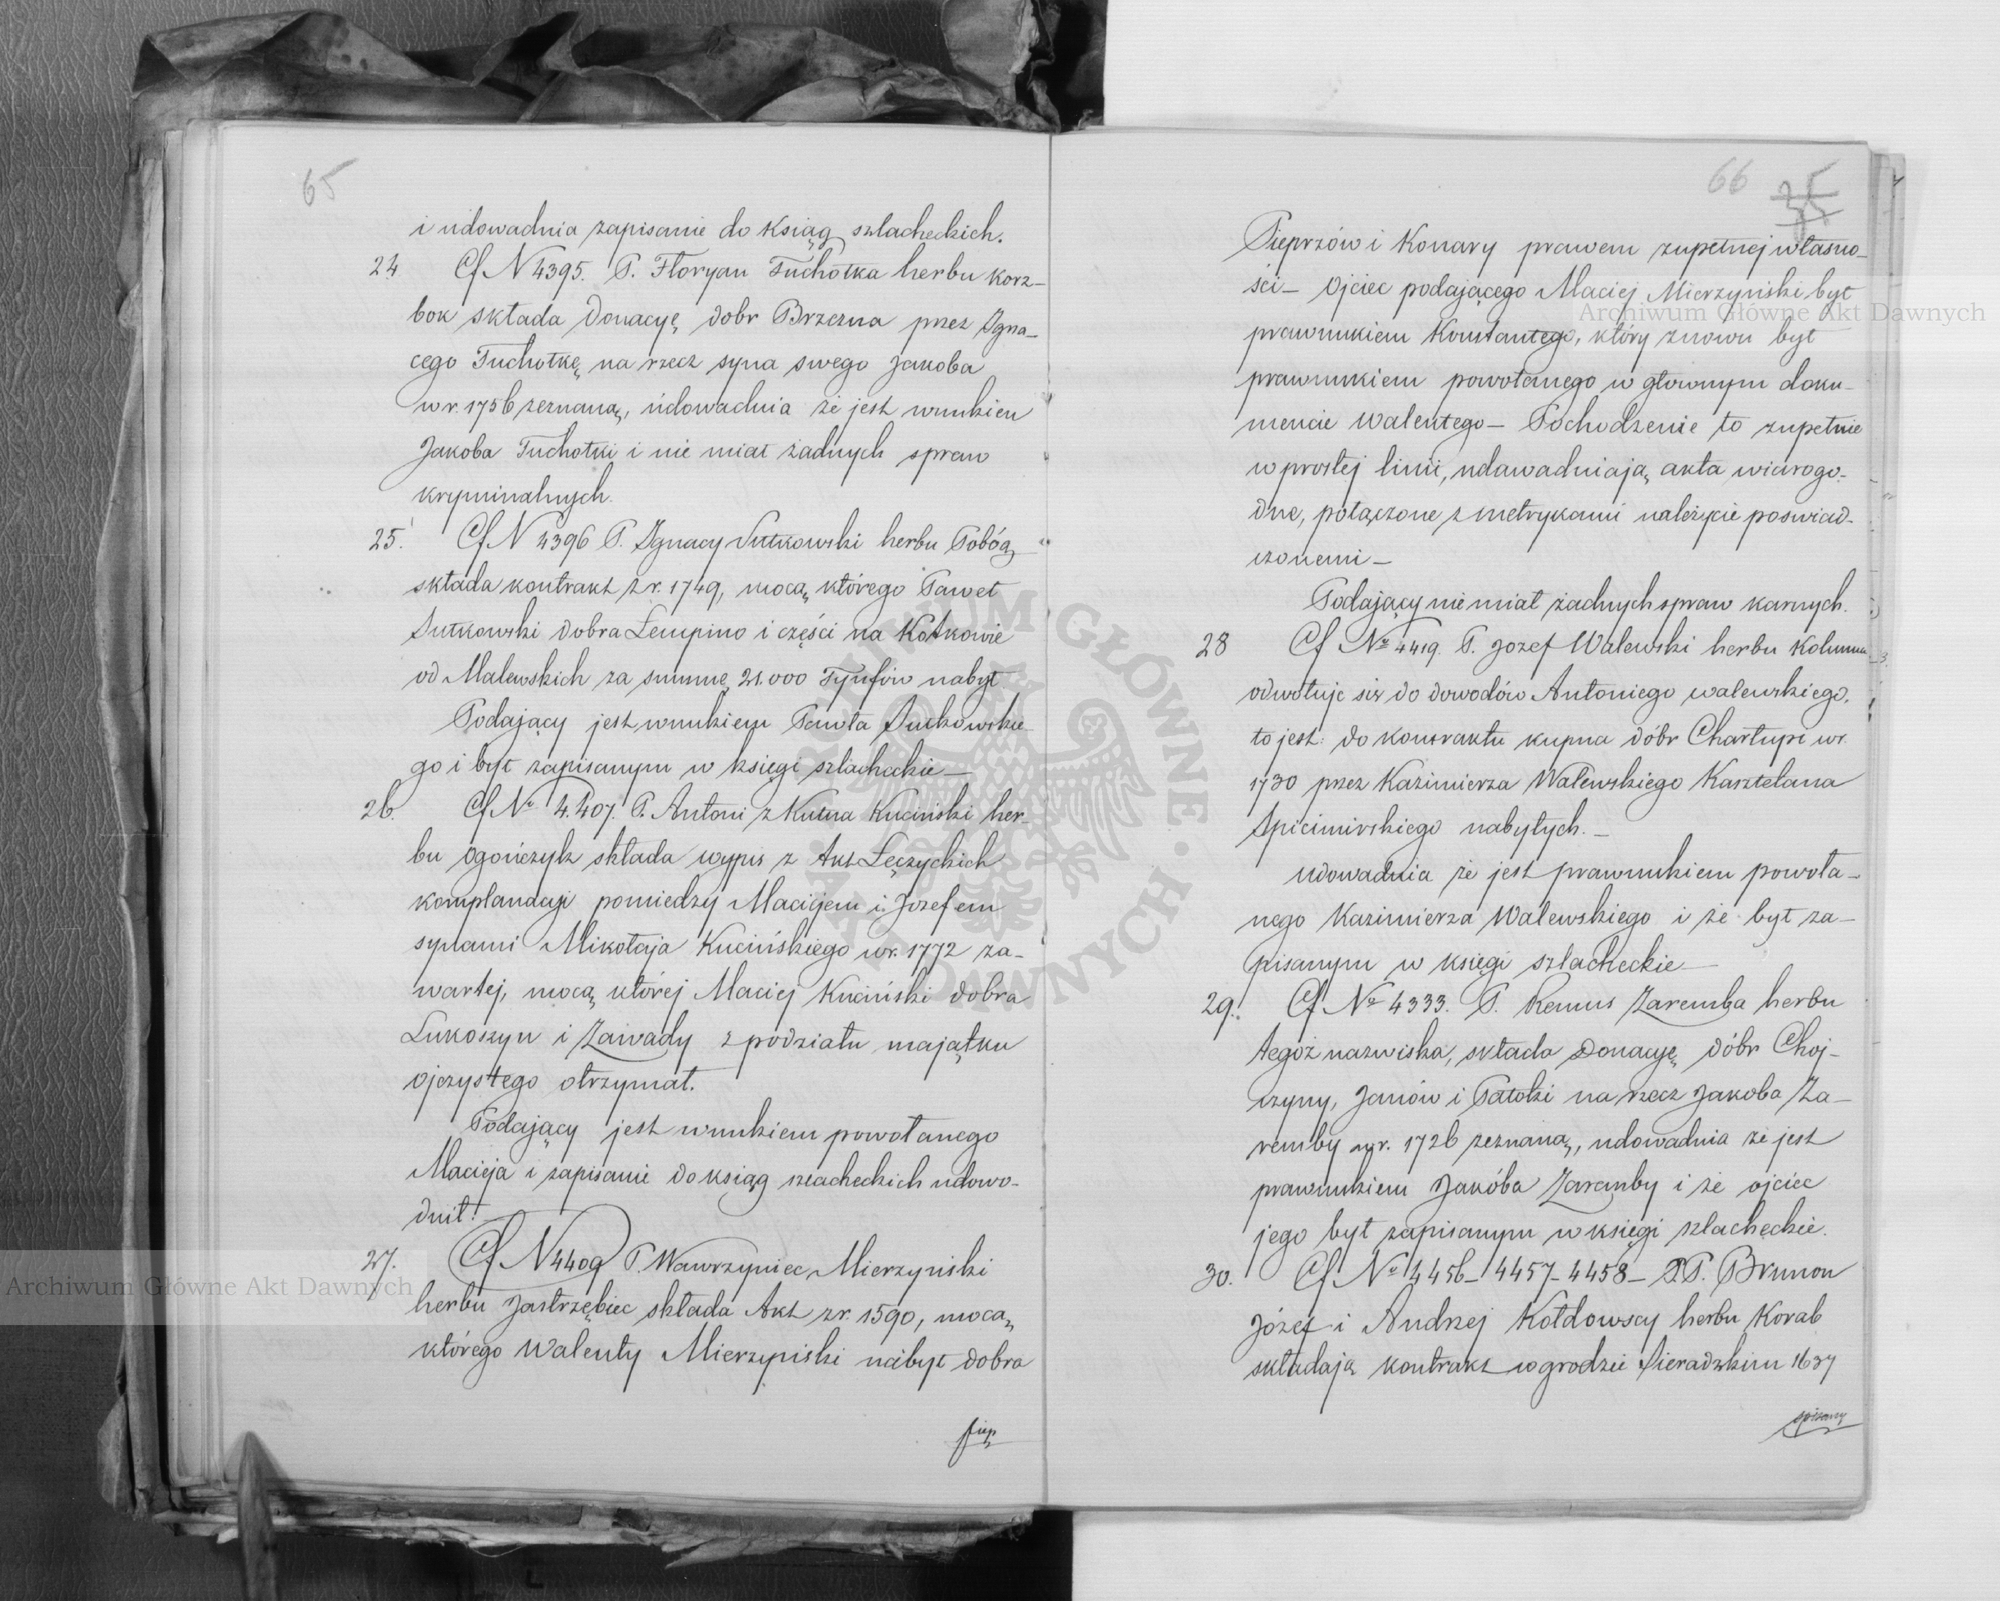 65
i udowadnia zapisanie do ksiąg szlacheckich.
24 Cf N 4395. P. Floryan Tuchołka herbu Korz-
bok składa Donacyę dobr Brzezna przez Igna-
cego Tuchołkę na rzecz syna swego Jakoba
w r. 1756 zeznaną, udowadnia że jest wnukiem
Jakoba Tuchołki i nie miał żadnych spraw
kryminalnych.
25. Cf N 4396 P. Ignacy Sutkowski herbu Pobóg
składa kontrakt z r. 1749, mocą którego Paweł
Sutkowski dobra Lempino i części na Kotkowie
od Malewskich za summę 21.000 Tynfów nabył
Podający jest wnukiem Pawła Sutkowskie-
go i był zapisanym w księgi szlacheckie—
26. Cf No 4.407. P. Antoni z Kutna Kuciński her-
bu Ogończyk składa wypis z Akt Łęczyckich
komplanacyi pomiedzy Maciejem i Jozefem
synami Mikołaja Kucińskiego w r. 1772 za-
wartej, mocą której Maciej Kuciński dobra
Lukoszyn i Zawady z podziału majątku
ojczystego otrzymał.
Podający jest wnukiem powołanego
Macieja i zapisanie do ksiąg szlacheckich udowo-
dnił.
27. Cf N 4409 P. Wawrzyniec Mierzyński
herbu Jastrzębiec składa Akt z r. 1590, mocą
którego Walenty Mierzyński nabył dobra
Piep
66 35
Pieprzów i Konary prawem zupełnej własno-
ści— Ojciec podającego Maciej Mierzyński był
prawnukiem Konstantego, który znowu był
prawnukiem powołanego w głownym doku-
mencie Walentego— Pochodzenie to zupełnie
w prostej linii, udawadniają akta wiarogo-
dne, połączone z metrykami należycie poswiad-
czonemi—
Podający nie miał żadnych spraw karnych.
28 Cf No 4419. P. Jozef Walewski herbu Kolumna
odwołuje się do dowodów Antoniego Walewskiego,
to jest: do kontraktu kupna dóbr Charłupi w r.
1730 przez Kazimierza Walewskiego Kasztelana
Spicimirskiego nabytych.—
Udowadnia że jest prawnukiem powoła-
nego Kazimierza Walewskiego i że był za-
pisanym w księgi szlacheckie—
29. Cf No 4333. P. Remus Zaremba herbu
tegoż nazwiska, składa Donacyę dóbr Choj-
czyny, Janów i Patoki na rzecz Jakoba Za-
remby w r. 1726 zeznaną, udowadnia że jest
prawnukiem Jakóba Zaremby i że ojciec
jego był zapisanym w księgi szlacheckie.
30. Cf No 4456— 4457— 4458— PP. Brunon
Józef i Andrzej Kołdowscy herbu Korab
składają kontrakt w grodzie Sieradzkim 1637
spisany
Archiwum Główne Akt Dawnych
Archiwum Główne Akt Dawnych
ARCHIWUM GŁÓWNE AKT DAWNYCH